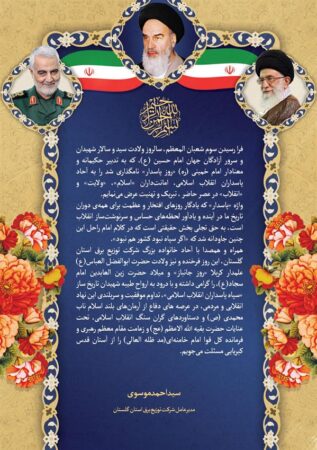 بسم الله الرحمن الرحیم
فرا رسیدن سوم شعبان المعظم، سالروز ولادت سید و سالار شهیدان
و سرور آزادگان جهان امام حسین (ع)، که به تدبیر حکیمانه و
معنادار امام خمینی (ره) «روز پاسدار» نامگذاری شد را به آحاد
پاسداران انقلاب اسلامی، امانت‌داران «اسلام»، «ولایت» و
«انقلاب» در عصر حاضر ، تبریک و تهنیت عرض می‌نمایم.
واژه «پاسدار» که یادگار روزهای افتخار و عظمت برای همه‌ی دوران
تاریخ ما در آینده و یادآور لحظه‌های حساس و سرنوشت‌ساز انقلاب
است، به حق تجلی بخش حقیقتی است که در کلام امام راحل این
چنین جاودانه شد که «اگر سپاه نبود کشور هم نبود».
همراه و همصدا با آحاد خانواده بزرگ شرکت توزیع برق استان
گلستان، این روز فرخنده و نیز ولادت حضرت ابوالفضل العباس(ع)
علمدار کربلا «روز جانباز» و میلاد حضرت زین العابدین امام
سجاد(ع)، را گرامی داشته و با درود به ارواح طیبه شهیدان تاریخ ساز
«سپاه پاسداران انقلاب اسلامی»، تداوم موفقیت و سربلندی این نهاد
انقلابی و مردمی، در عرصه های دفاع از آرمان‌های بلند اسلام ناب
محمدی (ص) و دستاوردهای گران سنگ انقلاب اسلامی، تحت
عنایات حضرت بقیه الله الاعظم (عج) و زعامت مقام معظم رهبری و
فرمانده کل قوا امام خامنه‌ای(مد ظله العالی) را از آستان قدس
کبریایی مسئلت می‌جویم.
سیداحمدموسوی
مدیرعامل شرکت توزیع برق استان گلستان